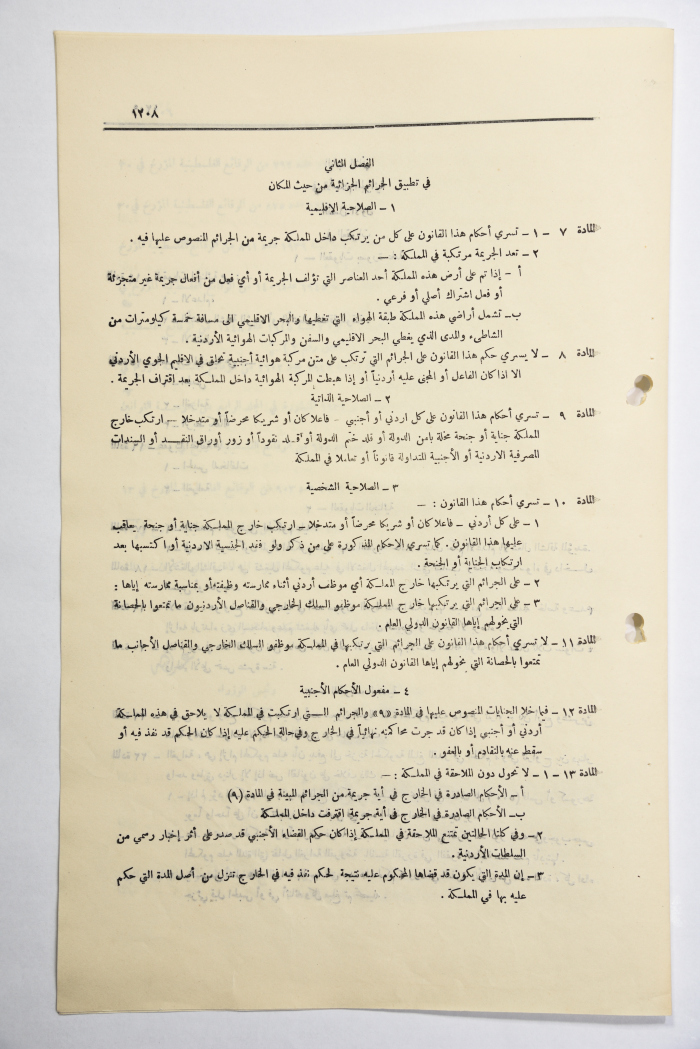 ١٢٠٨
الفصل الثاني
في تطبيق الجرائم الجزائية من حيث المكان
١ ـ الصلاحية الاقليمية
المادة ٧ ـ ١ ـ تسري أحكام هذا القانون على كل من يرتكب داخل المملكة جريمة من الجرائم المنصوص عليها فيه .
٢ ـ تعد الجريمة مرتكبة في المملكة : ـ
أ ـ إذا تم على أرض هذه المملكة أحد العناصر التي تؤلف الجريمة أو أي فعل من أفعال جريمة غير متجزئة
أو فعل اشتراك أصلي أو فرعي .
ب ـ تشمل أراضي هذه المملكة طبقة الهواء التي تغطيها والبحر الاقليمي الى مسافة خمسة كيلومترات من
الشاطىء والمدى الذي يغطي البحر الاقليمي والسفن والمركبات الهوائية الأردنية .
المادة ٨ ـ لا يسري حكم هذا القانون على الجرائم التي ترتكب على متن مركبة هوائية أجنبية تحلق في الاقليم الجوي الأردني
الا اذا كان الفاعل أو المجنى عليه أردنياً أو إذا هبطت المركبة الهوائية داخل المملكة بعد إقتراف الجريمة .
٢ ـ الصلاحية الذاتية
المادة ٩ ـ تسري أحكام هذا القانون على كل اردني أو أجنبي ـ فاعلا كان أو شريكا محرضاً أو متدخلا ـ ارتكب خارج
المملكة جناية أو جنحة مخلة بامن الدولة أو قلد ختم الدولة أو قلد نقوداً أو زور أوراق النقد أو السندات
المصرفية الاردنية أو الأجنبية المتداولة قانوناً أو تعاملا في المملكة
٣ ـ الصلاحية الشخصية
المادة ١٠ ـ تسري أحكام هذا القانون : ـ
١ ـ على كل أردني ـ فاعلا كان أو شريكا محرضاً أو متدخلا ـ ارتكب خارج المملكة جناية أو جنحة يعاقب
عليها هذا القانون . كما تسري الاحكام المذكورة على من ذكر ولو فقد الجنسية الاردنية أو اكتسبها بعد
ارتكاب الجناية أو الجنحة .
٢ ـ على الجرائم التي يرتكبها خارج المملكة أي موظف أردني أثناء ممارسته وظيفته أو بمناسبة ممارسته إياها :
٣ ـ على الجرائم التي يرتكبها خارج المملكة موظفو السلك الخارجي والقناصل الأردنيون ما تمتعوا بالحصانة
التي يخولهم إياها القانون الدولي العام .
المادة ١١ ـ لا تسري أحكام هذا القانون على الجرائم التي يرتكبها في المملكة موظفو السلك الخارجي والقناصل الأجانب ما
تمتعوا بالحصانة التي يخولهم إياها القانون الدولي العام .
٤ ـ مفعول الأحكام الأجنبية
المادة ١٢ ـ فيما خلا الجنايات المنصوص عليها في المادة «٩» والجرائم التي ارتكبت في المملكة لا يلاحق في هذه المملكة
أردني أو أجنبي إذا كان قد جرت محاكمته نهائياً في الخارج وفي حالة الحكم عليه إذا كان الحكم قد نفذ فيه أو
سقط عنه بالتقادم أو بالعفو .
المادة ١٣ ـ ١ ـ لا تحول دون الملاحقة في المملكة : ـ
أ ـ الأحكام الصادرة في الخارج في أية جريمة من الجرائم المبينة في المادة (٩)
ب ـ الأحكام الصادرة في الخارج في أية جريمة اقترفت داخل المملكة
٢ ـ وفي كلتا الحالتين تمتنع الملاحقة في المملكة إذا كان حكم القضاء الأجنبي قد صدر على أثر إخبار رسمي من
السلطات الأردنية .
٣ ـ إن المدة التي يكون قد قضاها المحكوم عليه نتيجة لحكم نفذ فيه في الخارج تنزل من أصل المدة التي حكم
عليه بها في المملكة .